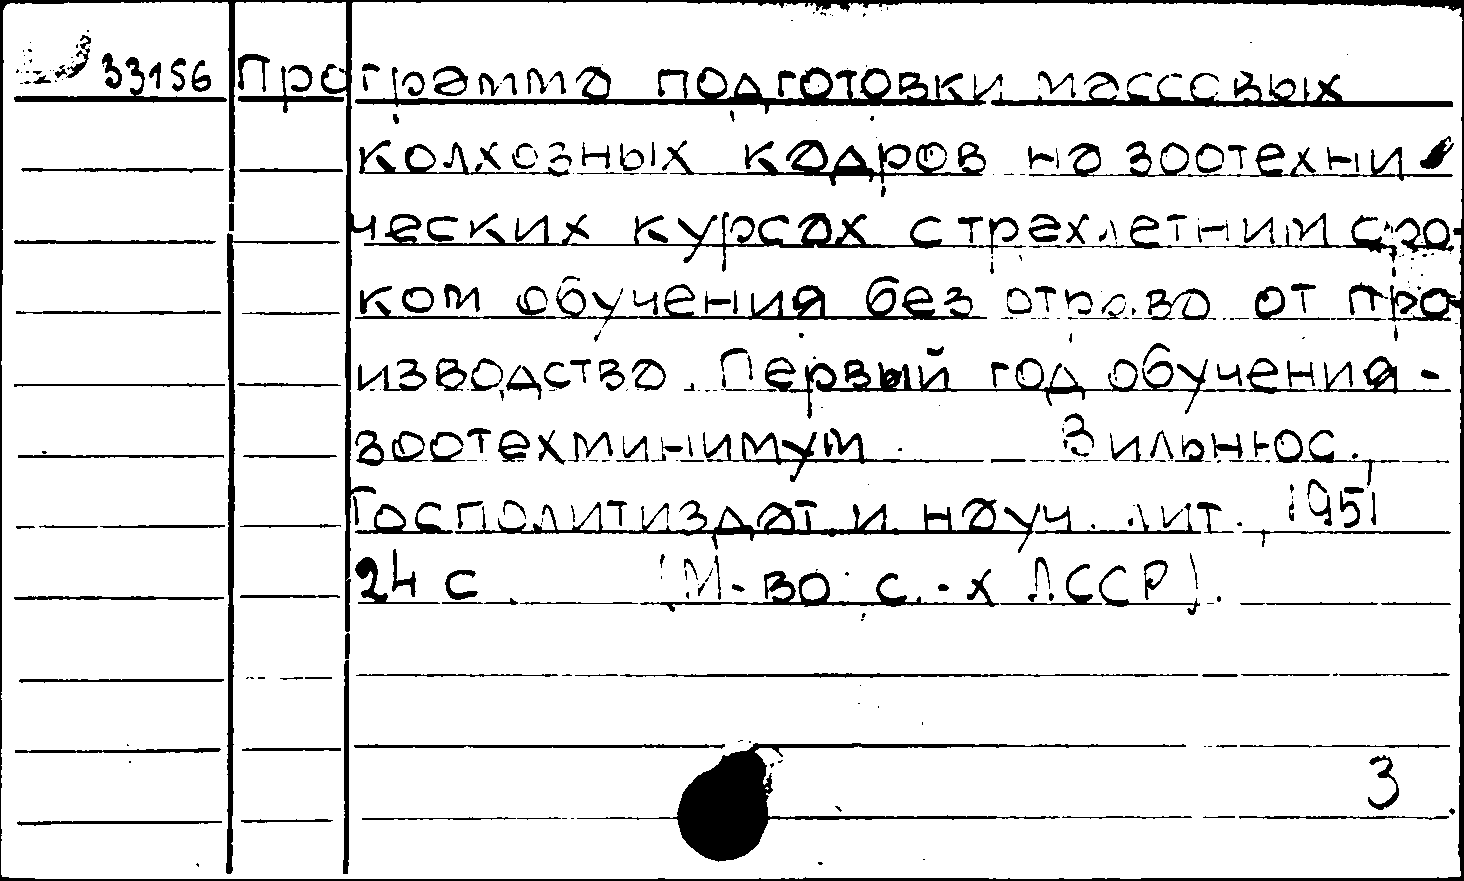 33156 Программа подготовки массовых
колхозных кадров на зоотехни
ческих курсах с трехлетним сро-
ком обучения без отрыва от про-
изводства. Первый год обучения -
зоотехминимум. Вильнюс.
Госполитиздат и науч. лит., 1951
24 с. (М-во с.-х ЛССР).
3